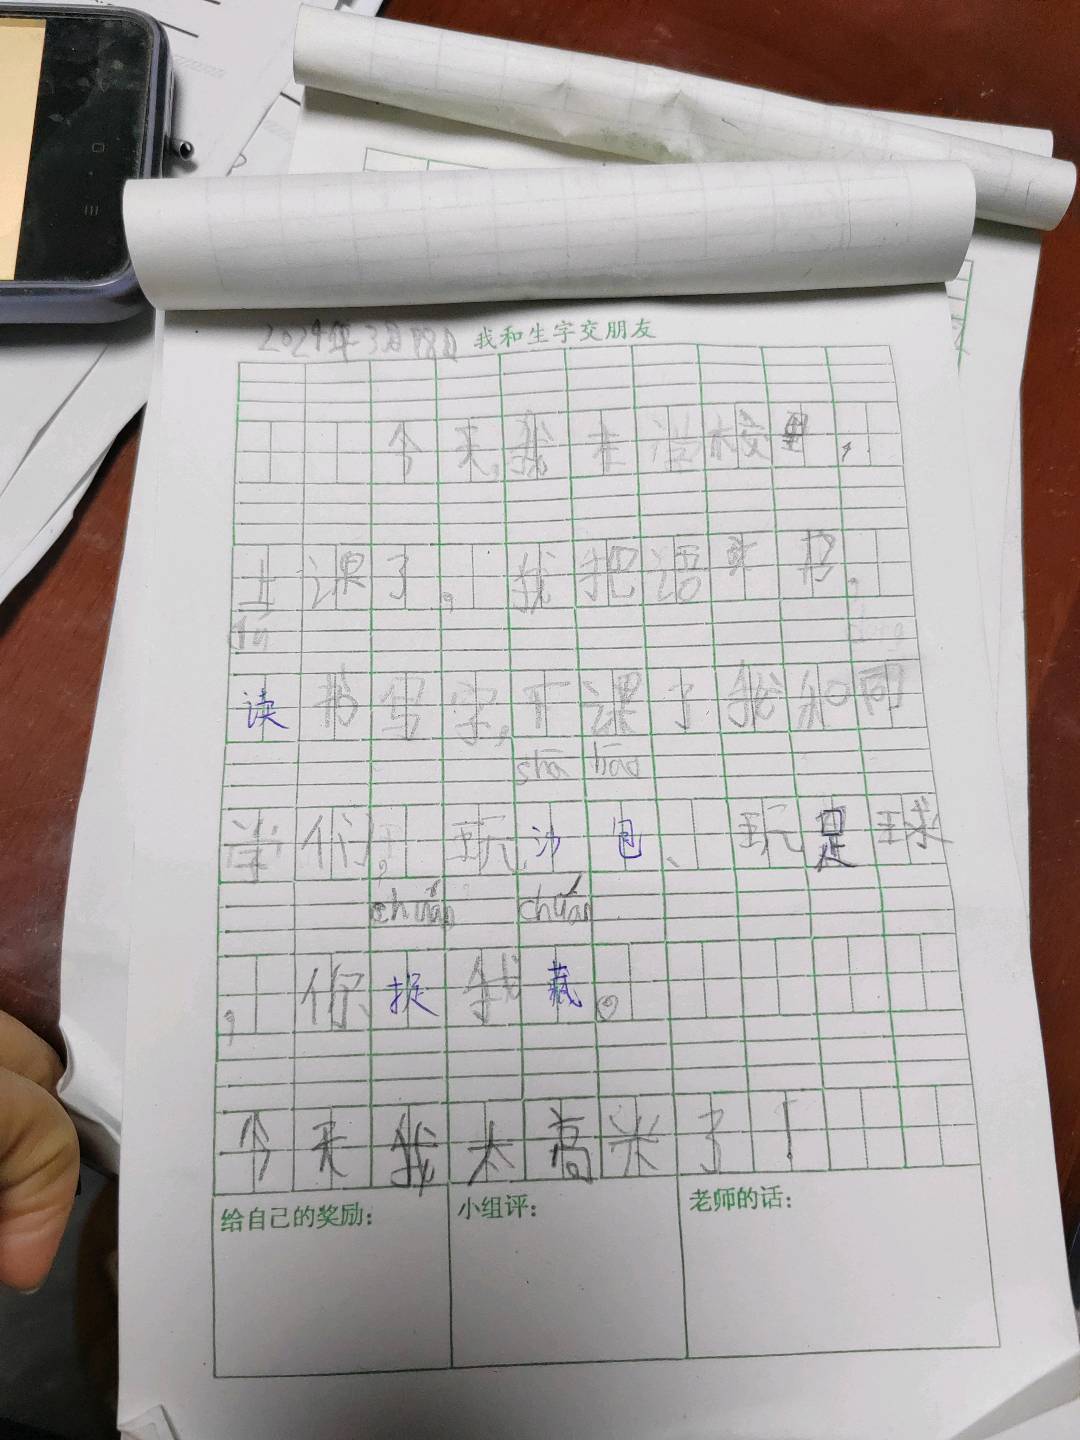 2024年3月18日 我和生字交朋友
今天,我在学校里,
上课了,我把语文书,
dú
读书写字,下课了我和同
shā bāo
学们,玩沙包、玩足球
,你捉我藏。
今天我太高兴了!
给自己的奖励: 小组评: 老师的话: